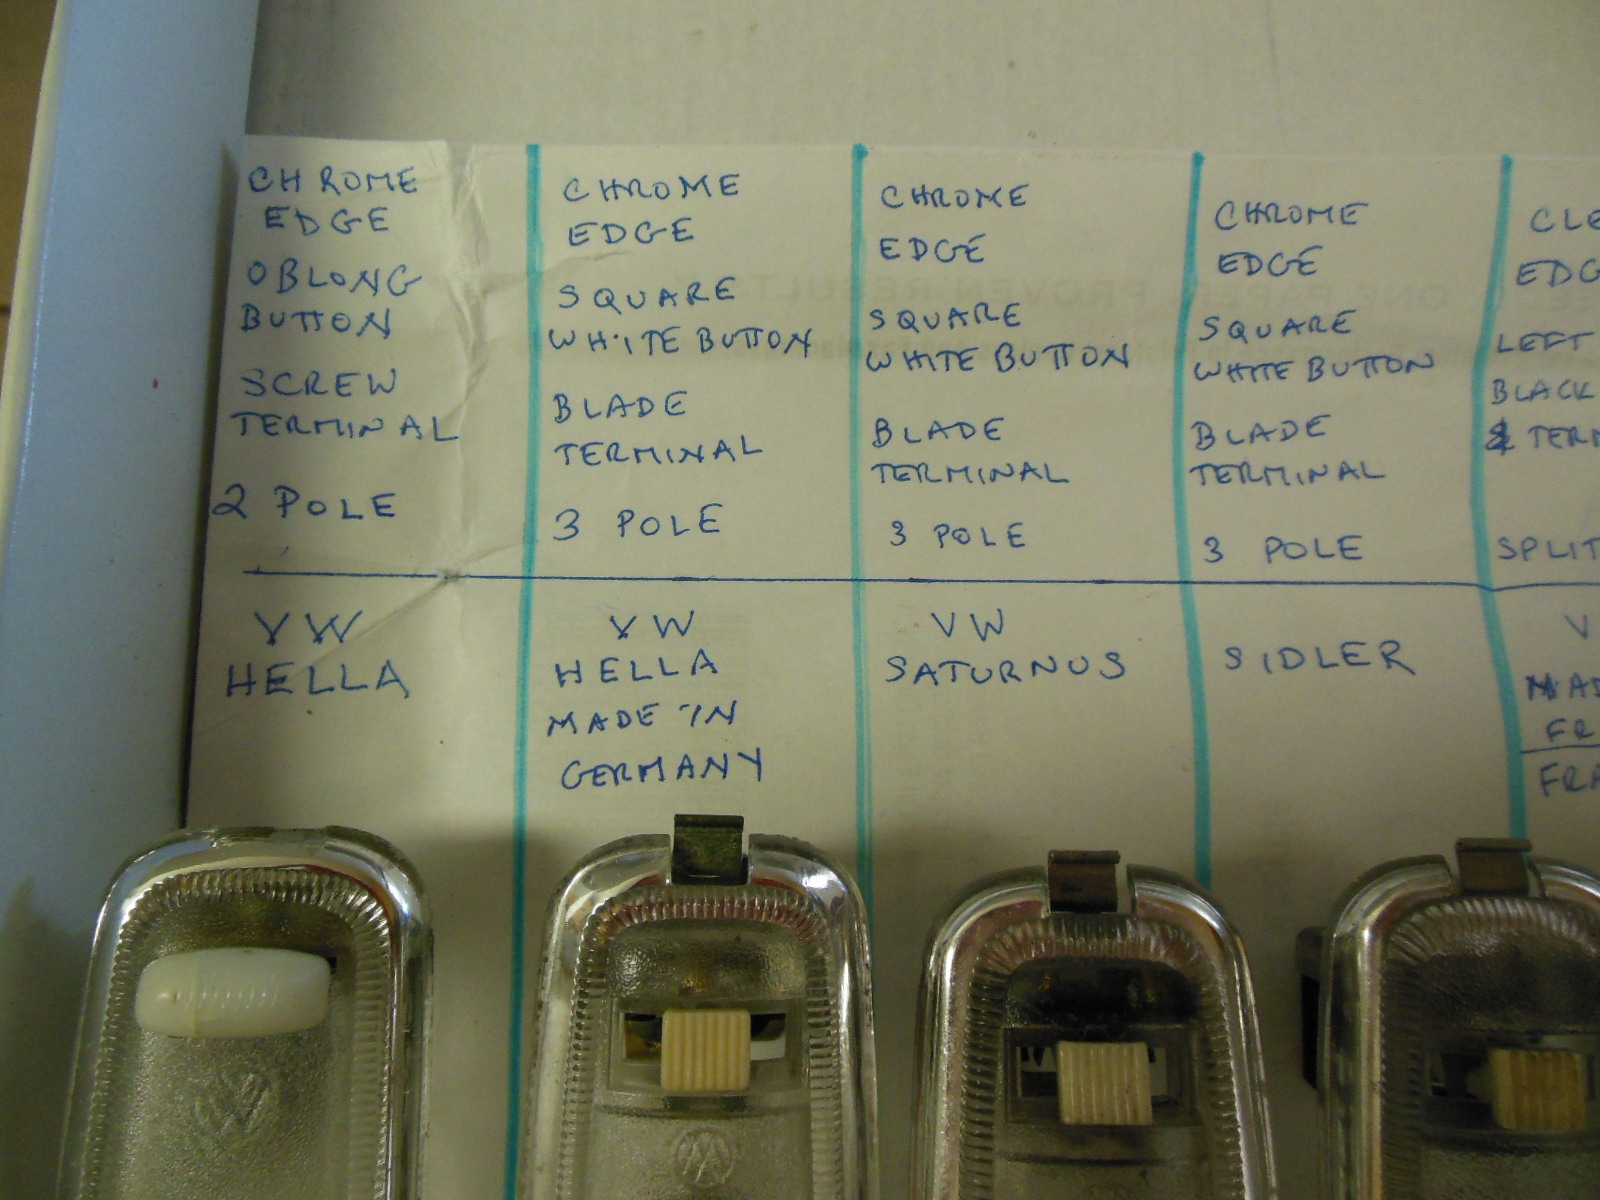 CHROME
EDGE
OBLONG
BUTTON
SCREW
TERMINAL
2 POLE
VW
HELLA
CHROME
EDGE
SQUARE
WHITE BUTTON
BLADE
TERMINAL
3 POLE
VW
HELLA
MADE IN
GERMANY
CHROME
EDGE
SQUARE
WHITE BUTTON
BLADE
TERMINAL
3 POLE
VW
SATURNUS
CHROME
EDGE
SQUARE
WHITE BUTTON
BLADE
TERMINAL
3 POLE
SIDLER
CLE
EDG
LEFT
BLACK
& TERM
SPLIT
V
MAD
FR
FRA
PROVEN RESULTS
VW